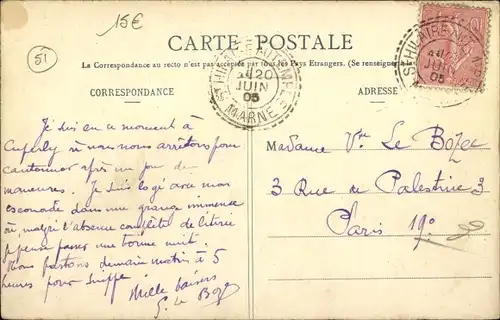 15€
51
CARTE POSTALE
La Correspondance au recto n'est pas acceptée par tous les Pays Etrangers. (Se renseigner
CORRESPONDANCE
ADRESSE
ST HILAIRE AU TEMPLE
20
JUIN
05
MARNE
ST HILAIRE AU TEMPLE
JUIN
05
10
Je suis en ce moment à
Cuperly où nous nous arrêtons pour
cantonner après un jour de
manœuvres. Je suis logé avec mon
escouade dans une grange immense
où, malgré l'absence complète de literie
je pense passer une bonne nuit.
Nous partons demain matin à 5
heures pour Suippe.
Mille baisers
Le Bozec
Madame Vve Le Bozec
3 Rue de Palestine 3
Paris 19e